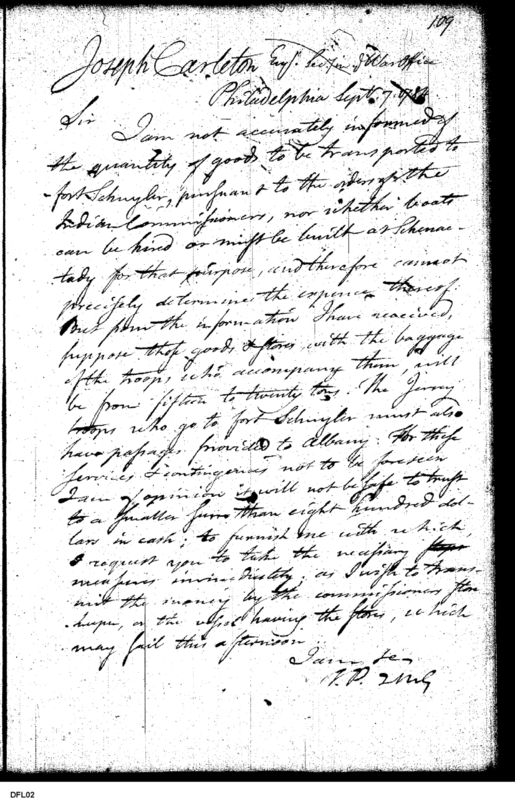 109
Joseph Carleton Esqr. Secy in ye War Office
Philadelphia Septr. 7. 1784
Sir
I am not accurately informed of
the quantity of goods to be transported to
fort Schuyler, pursuant to the orders of the
Indian Commissioners, nor whether boats
can be hired or must be built at Schenec-
tady for that purpose, and therefore cannot
precisely determine the expence thereof.
But from the information I have received,
suppose those goods & stores, with the baggage
of the troops who accompany them, will
be from fifteen to twenty tons. The Jersey
troops who go to fort Schuyler must also
have passages provided to Albany. For these
services & contingencies not to be foreseen
I am of opinion it will not be safe to trust
to a smaller sum than eight hundred dol-
lars in cash; to furnish me with which,
I request you to take the necessary steps
measures immediately; as I wish to trans-
mit the money by the commissioners store
keeper, or the vessel having the stores, which
may sail this afternoon
I am &c
T. P. 2MG
DFL02